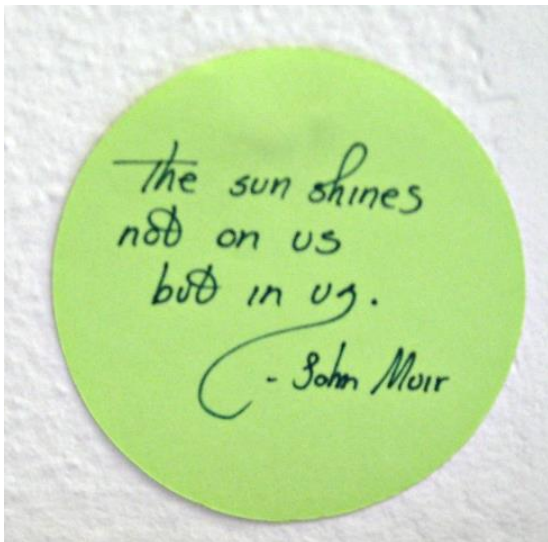 The sun shines
not on us
but in us.
- John Muir